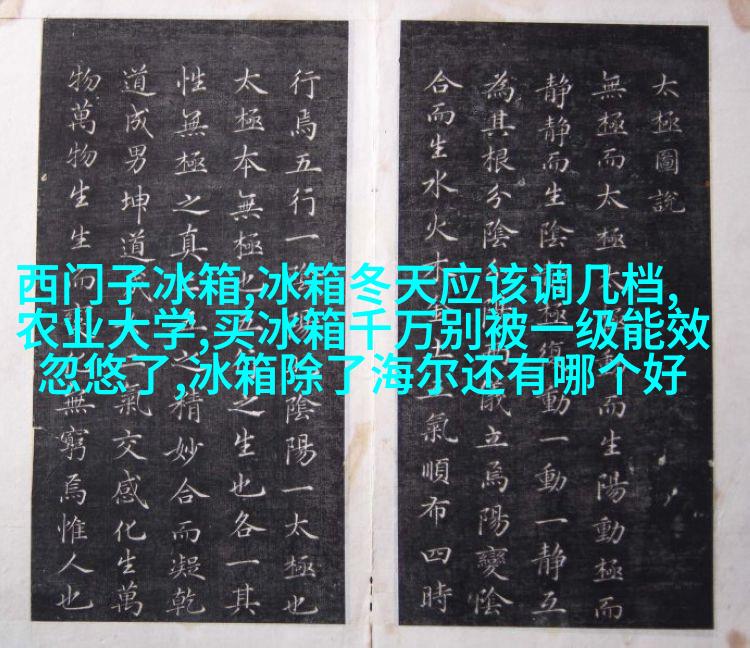 西门子冰箱,冰箱冬天应该调几档,
农业大学,买冰箱千万别被一级能效
忽悠了,冰箱除了海尔还有哪个好
太極圖說
無極而太極動而生陽動極而
靜靜而生陰極復動一動一靜互
為其根分陰分陽儀立焉陽變陰
合而生水火木金土五氣順布四時
行焉五行一陰陽陰陽一太極也
太極本無極也五之生也各一其
性無極之真五之精妙合而凝乾
道成男坤道成二氣交感化生萬
物萬物生生而變無窮焉惟人也